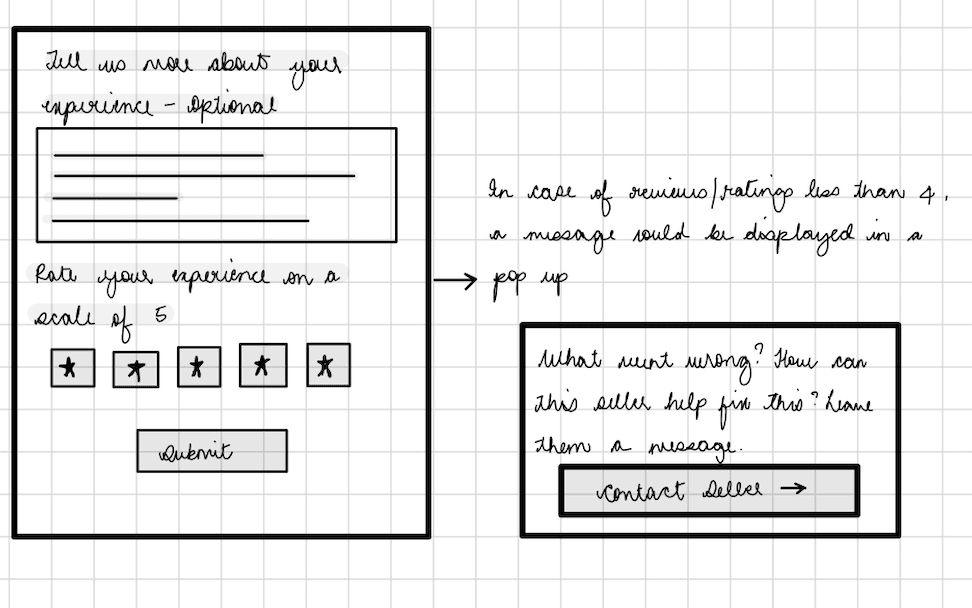 Tell us more about your
experience - optional
Rate your experience on a
scale of 5
Submit
In case of reviews/ratings less than 4,
a message would be displayed in a
pop up
What went wrong? How can
this seller help fix this? Leave
them a message.
Contact Seller →